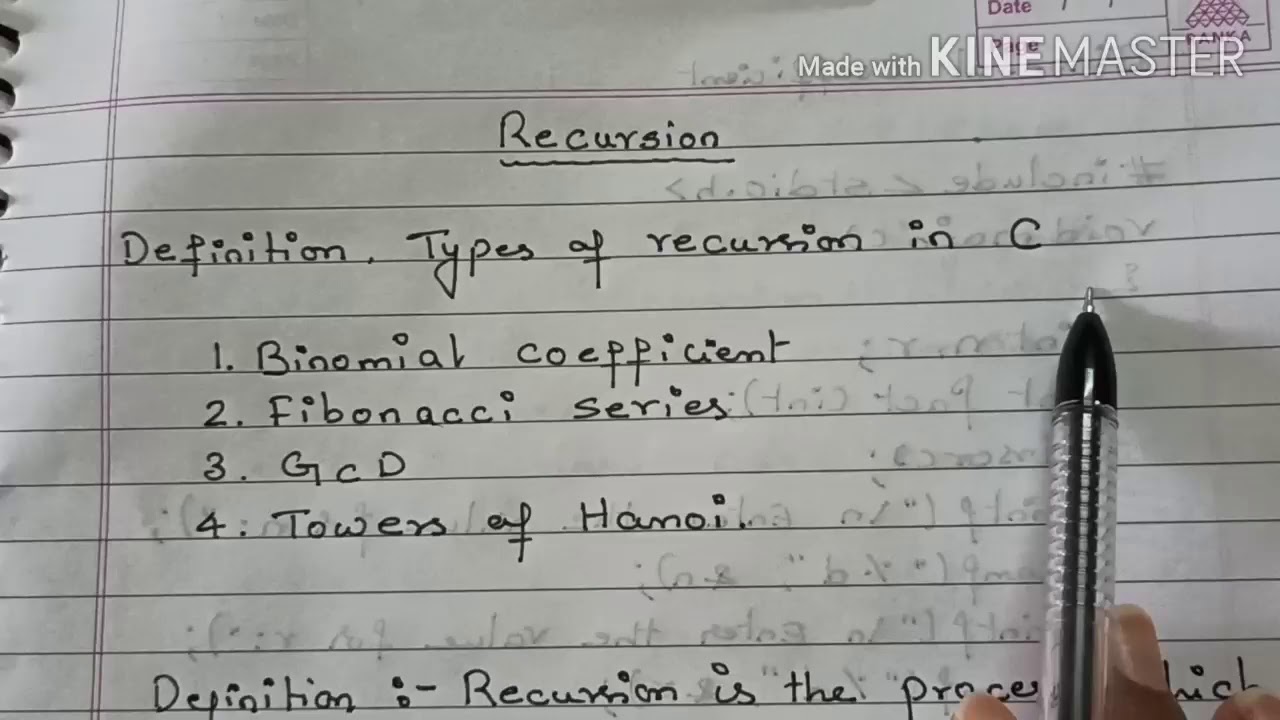 Date / /
Page
PANKA
Made with KINEMASTER
Recursion
Definition, Types of recursion in C
1. Binomial coefficient
2. Fibonacci series
3. GCD
4. Towers of Hanoi.
Definition :- Recursion is the